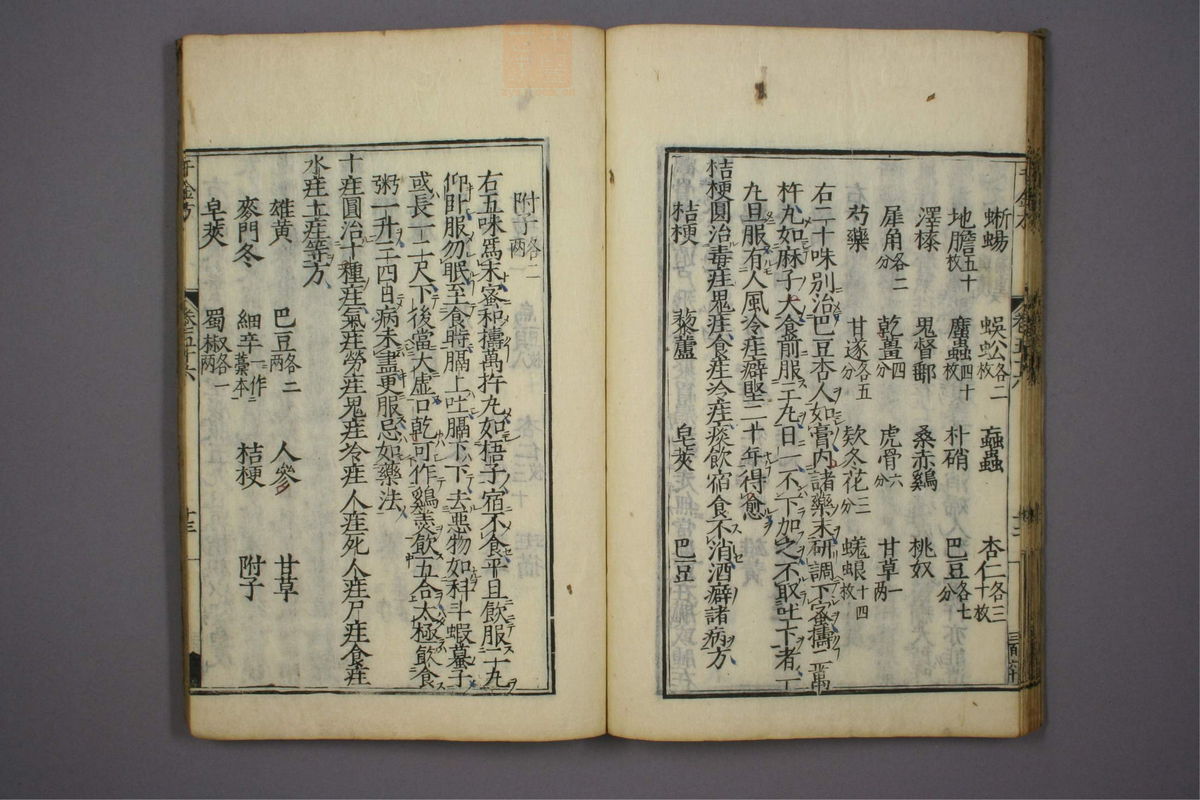 蜥蜴 蜈蚣各二枚 蝱蟲 杏仁各三十枚
地膽五十枚 䗪蟲四十枚 朴硝 巴豆各七分
澤㯶 鬼督郵 桑赤鷄 桃奴
犀角各二分 乾薑四分 虎骨六分 甘草一兩
芍藥 甘遂各五分 欵冬花三分 蜣蜋十四枚
右二十味別治巴豆杏人如膏内諸藥末研調下蜜擣二萬
杵丸如麻子大食前服三丸日一不下加之不取吐下者一
丸旦服有人風冷疰癖堅二十年得愈
桔梗圓治毒疰鬼疰食疰冷疰痰飲宿食不消酒癖諸病方
桔梗 藜蘆 皂莢 巴豆
附子各二兩
右五味爲末蜜和擣萬杵丸如梧子宿不食平旦飲服二十丸
仰卧服勿眠至食時膈上吐膈下下去惡物如科斗蝦蟇子
或長一二尺下後當大虚口乾可作鷄羹飲五合太極飲食
粥一升三四日病未盡更服忌如藥法
十疰圓治十種疰氣疰勞疰鬼疰冷疰人疰死人疰尸疰食疰
水疰土疰等方
雄黃 巴豆各二兩 人參 甘草
麥門冬 細辛一作藁本 桔梗 附子
皂莢 蜀椒各一兩
千金方 卷五十六 十三